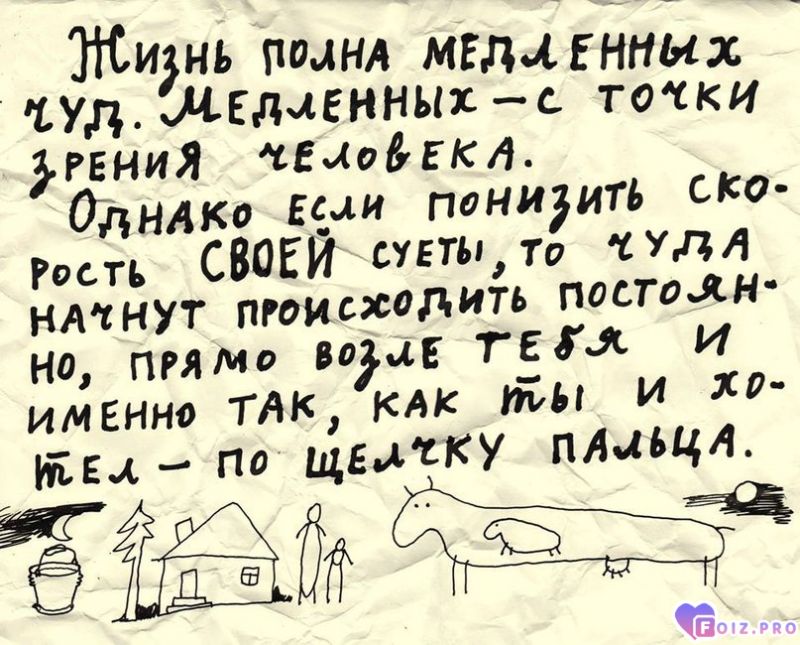 Жизнь полна медленных
чуд. Медленных – с точки
зрения человека.
Однако если понизить ско-
рость СВОЕЙ суеты, то чуда
начнут происходить постоян-
но, прямо возле тебя и
именно так, как ты и хо-
тел – по щелчку пальца.
FOIZ.PRO